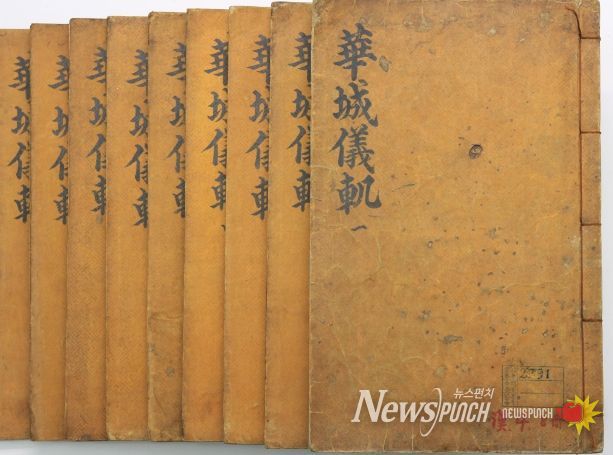 華城儀軌
華城儀軌
華城儀軌
華城儀軌
華城儀軌
華城儀軌
華城儀軌
華城儀軌
華城儀軌 一
2791
뉴스펀치
NEWSPUNCH
NEWSPUNCH